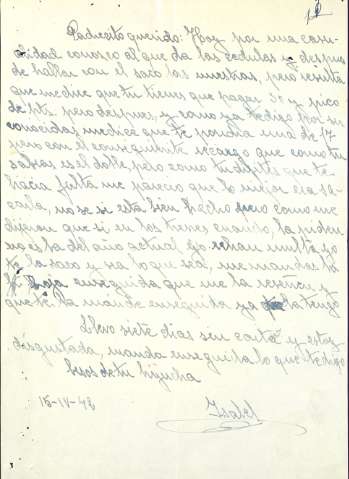 Padrecito querido: Hoy por una casu-
alidad conozco al que da las cedulas y despues
de hablar con el saco las nuestras, pero resulta
que me dice que tu tienes que pagar 30 y pico
de pts. pero despues y como ya te digo por su
conocidas me dice que te pondria una de 17
pero con el consiguiente recargo que como tu
sabras es el doble pero como tu dijiste que te
hacia falta me parecio que lo mejor era sa-
carla, no se si está bien hecho pero como me
dijeron que si en los trenes cuando la piden
no está del año actual echan
te la saco y sea lo que sea, me mandas
hoja enseguida que me la reserva y
que te la mande enseguida ya la tengo
Llevo siete dias sin carta y estoy
disgustada, manda enseguida lo que te digo
besos de tu hijinha
15-IV-43
Isabel